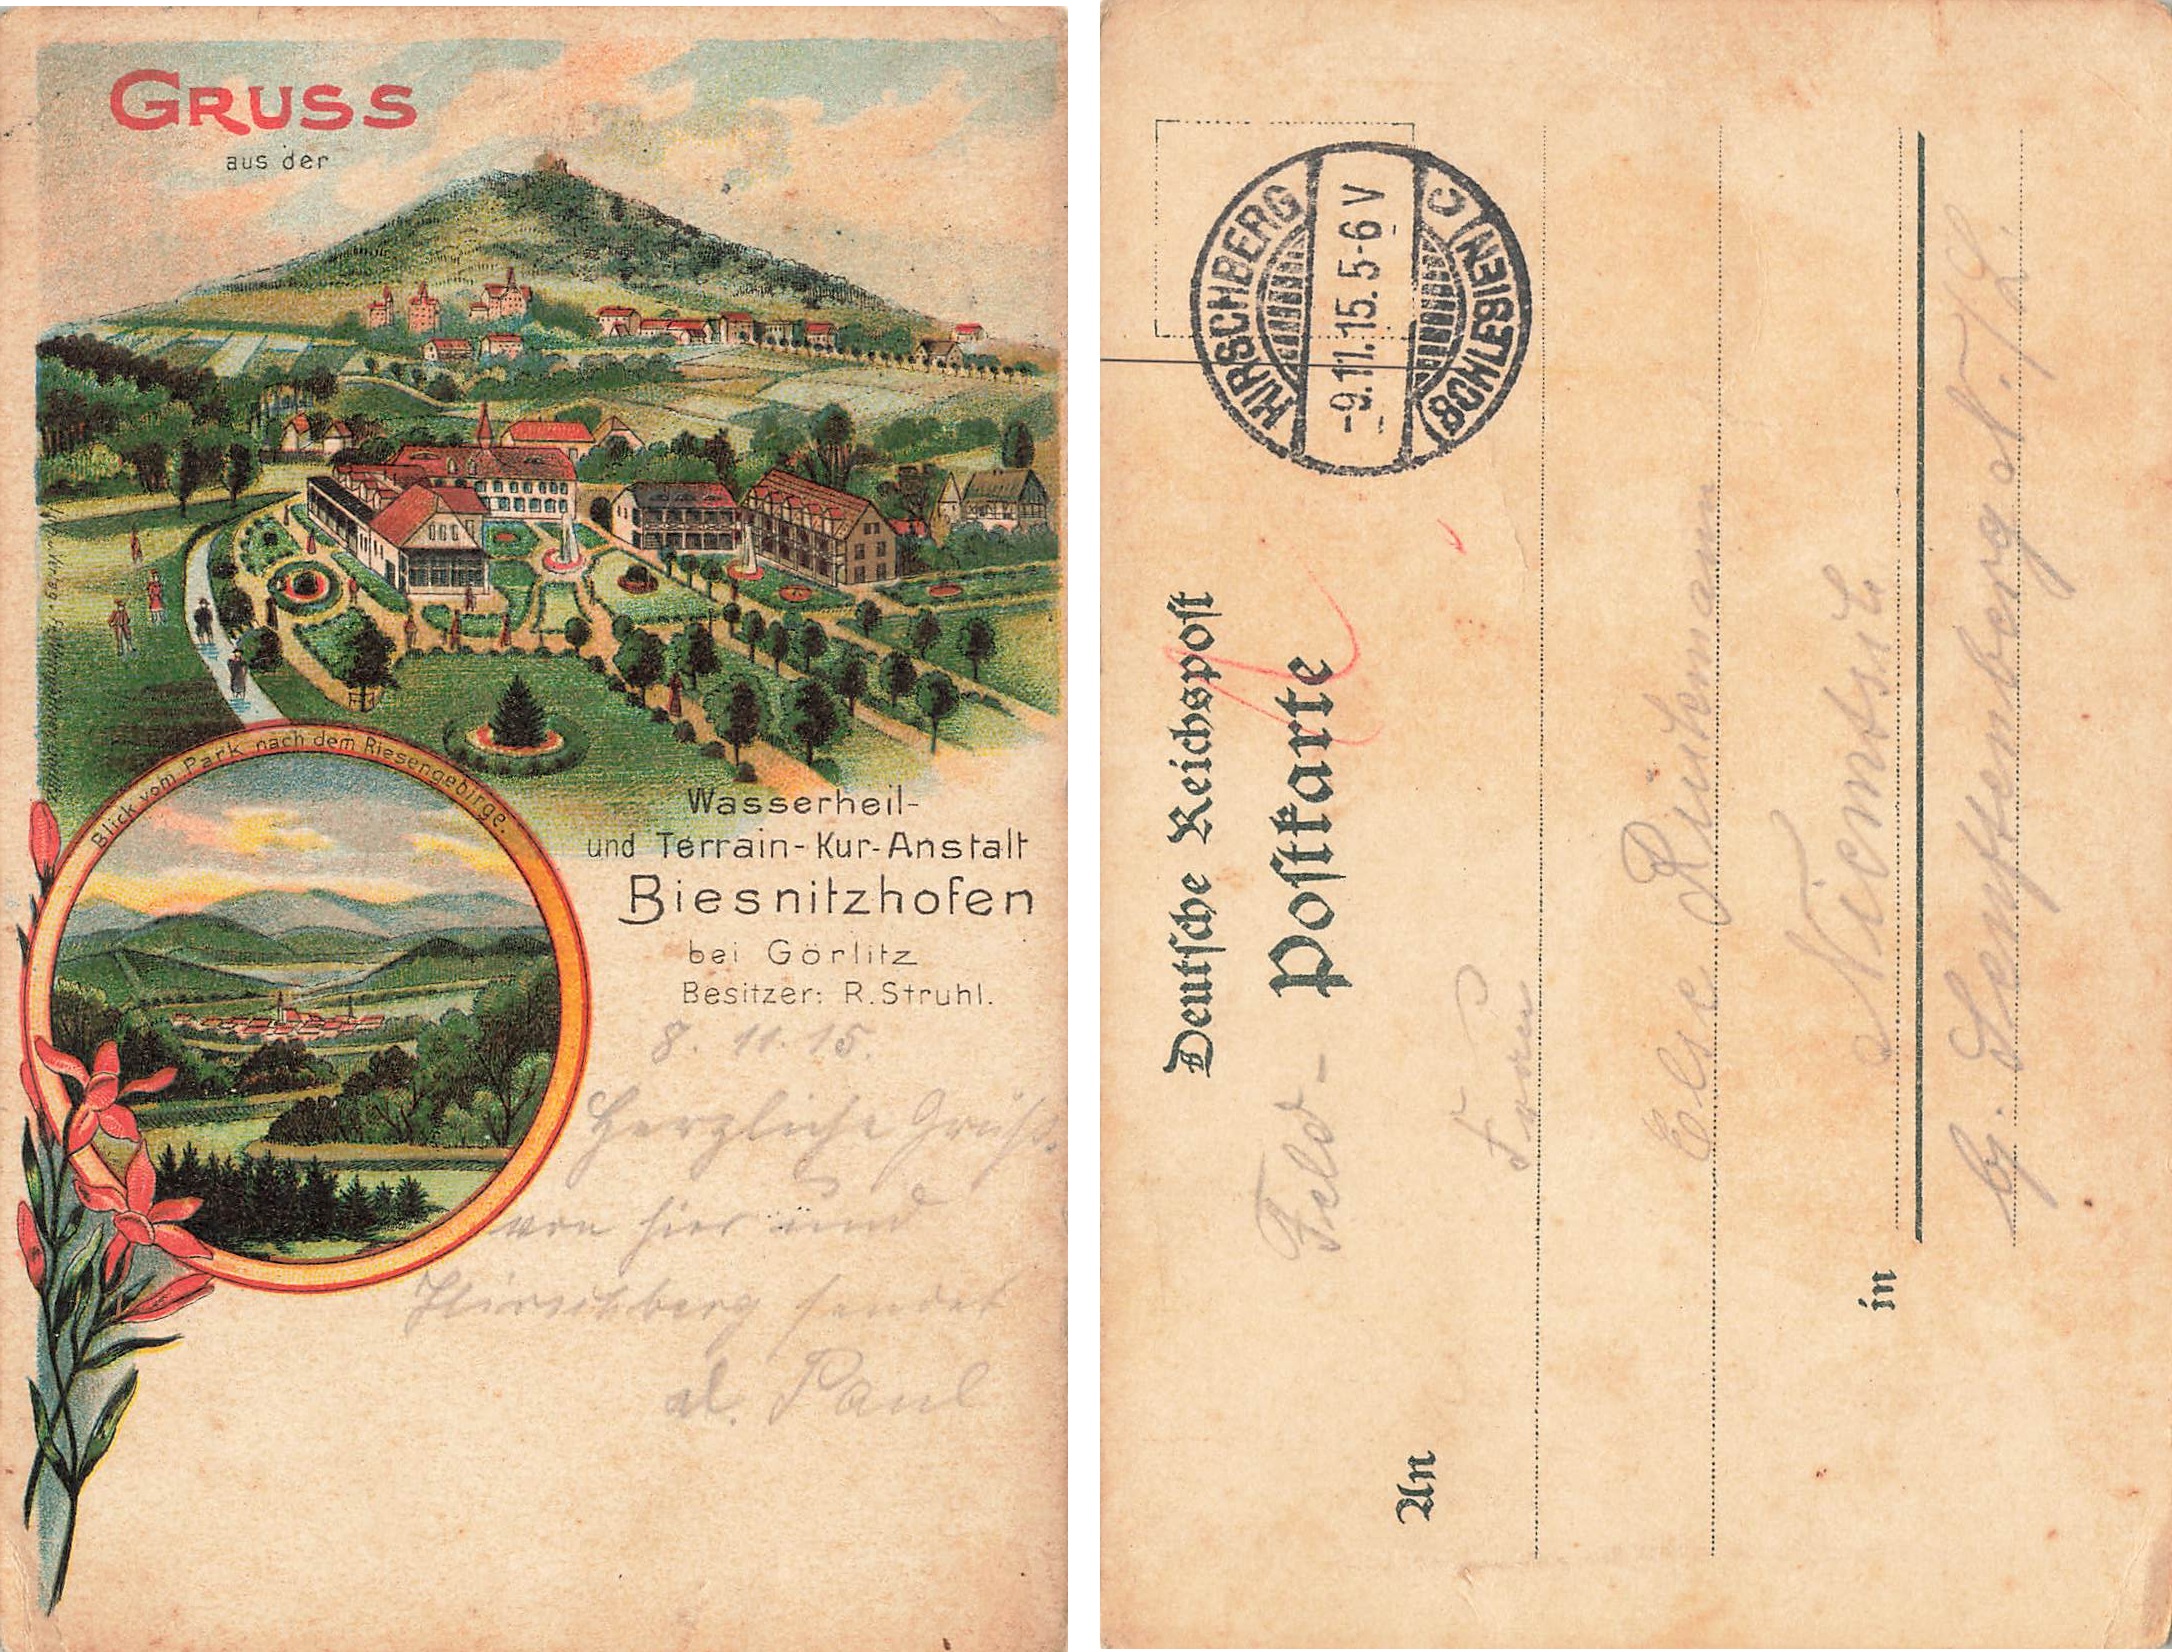 GRUSS
aus der
Blick vom Park nach dem Riesengebirge.
Wasserheil-
und Terrain-Kur-Anstalt
Biesnitzhofen
bei Görlitz
Besitzer: R. Struhl.
8. 11. 15.
Herzliche Grüße
von hier und
Hirschberg sendet
d. Paul
HIRSCHBERG
SCHLESIEN
C
-9.11.15.5-6 V
Deutsche Reichspost
Feld- Postkarte
An
Frau
Else
in
Niemtsch
b/. Senftenberg N./L.